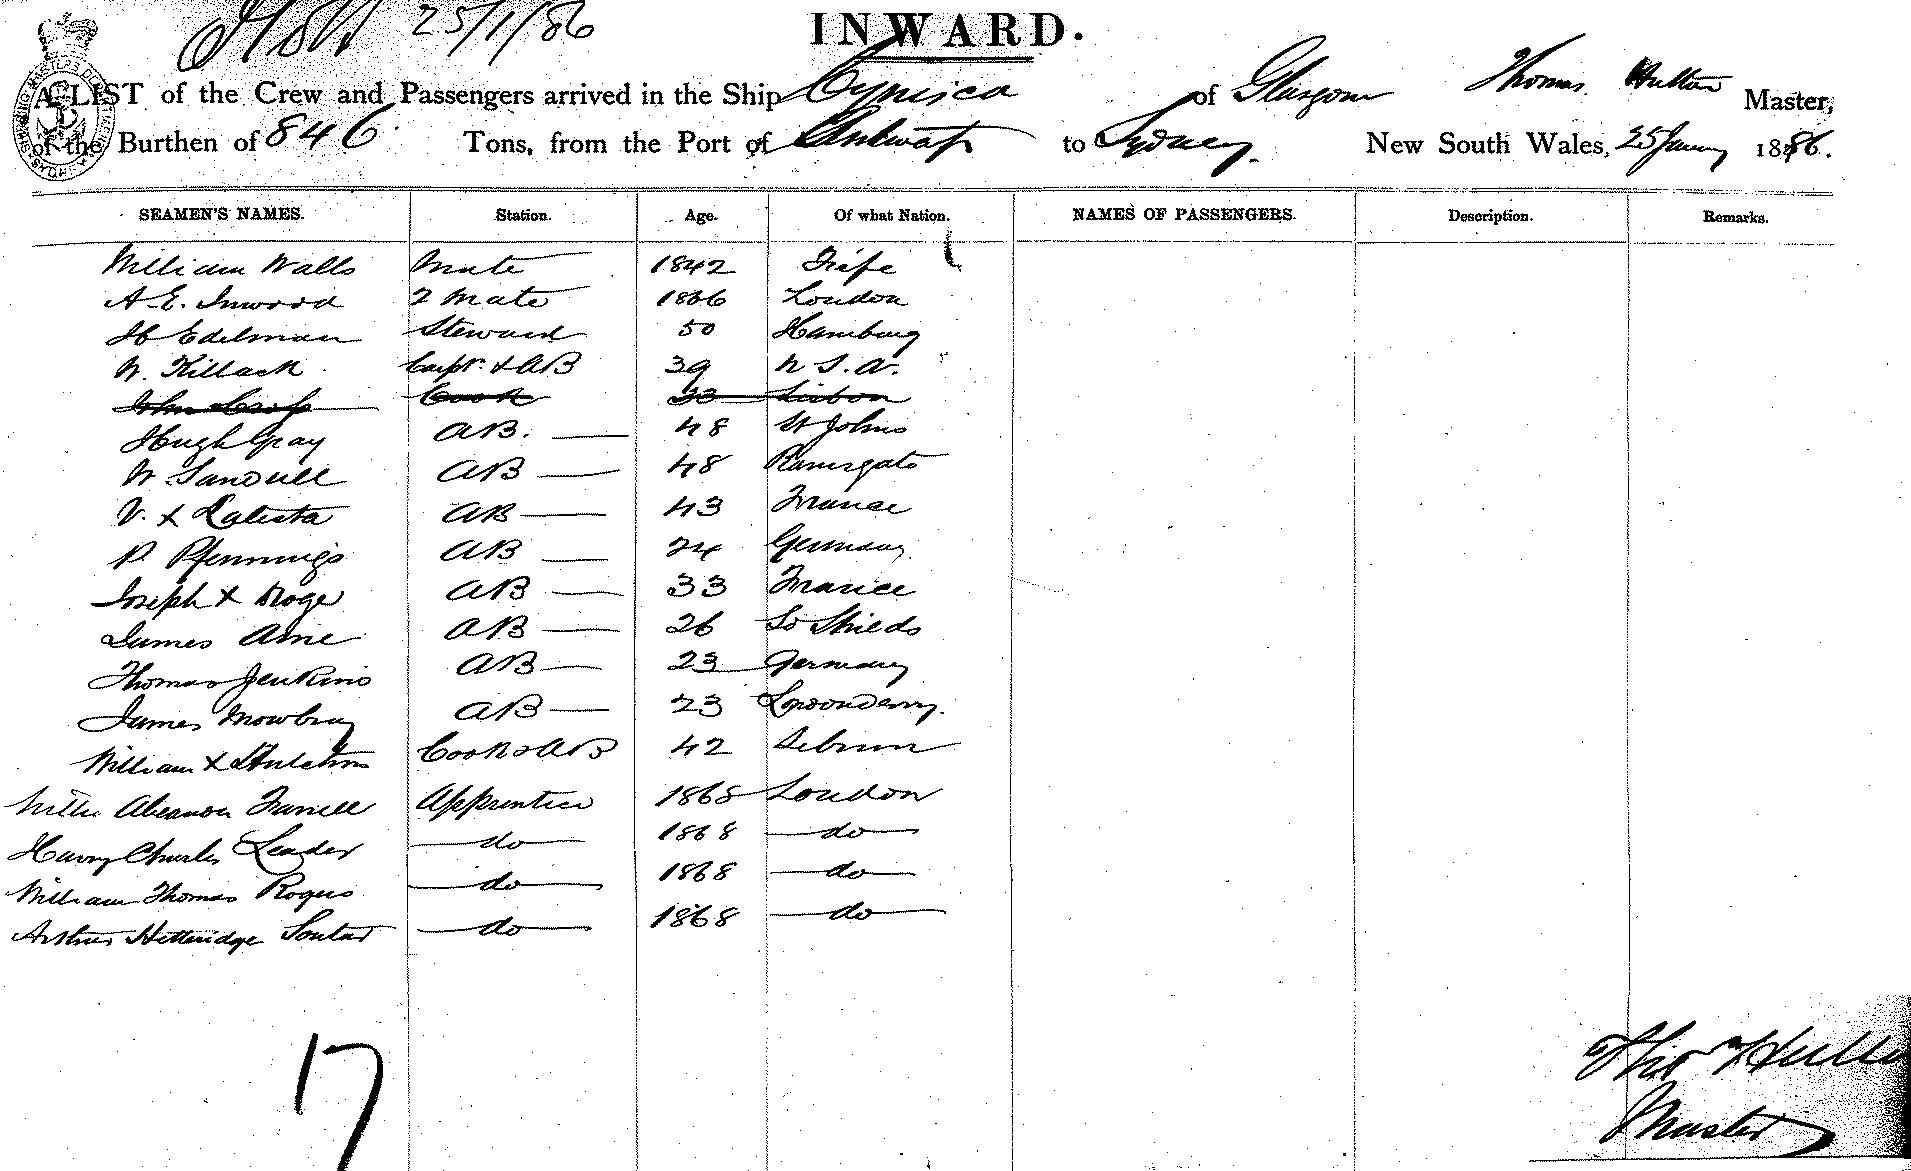 25/1/86
INWARD.
A LIST of the Crew and Passengers arrived in the Ship Cynisca of Glasgow Thomas Hutton Master,
of the Burthen of 846 Tons, from the Port of Antwerp to Sydney. New South Wales, 25 January 1886.
SEAMEN'S NAMES. Station. Age. Of what Nation. NAMES OF PASSENGERS. Description. Remarks.
William Walls Mate 1842 Fife
A. E. Inwood 2 Mate 1866 London
H Edelman Steward 50 Hamburg
W. Killack Carpr. & AB 39
Cook 33 Lisbon
Hugh Gray AB. 48 St Johns
W AB 48 Ramsgate
V. X Latesta AB 43 France
P. Pfennings AB 24 Germany
Joseph X Roge AB 33 France
James AB 26 So Shields
Thomas Jenkins AB 23 Germany
James Mowbray AB 23 Londonderry.
William X Cook & AB 42
Farrell Apprentice 1868 London
Harry Charles Leader do 1868 do
William Thomas Rogers do 1868 do
Arthur Soutar do 1868 do
17
Thos
Master